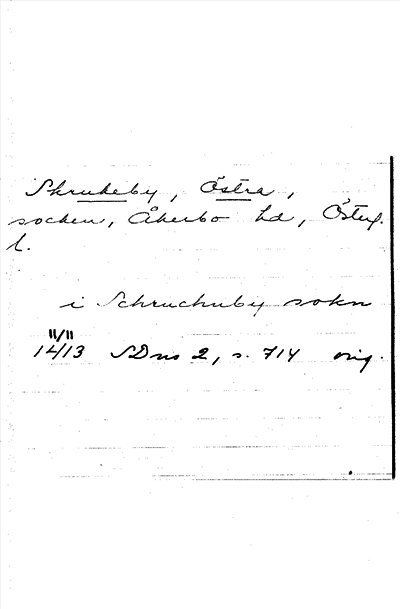 Skrukeby, Östra,
socken, Åkerbo hd, Österg.
l.
i Schruchuby sokn
11/11
1413 SDns 2, s. 714 orig.